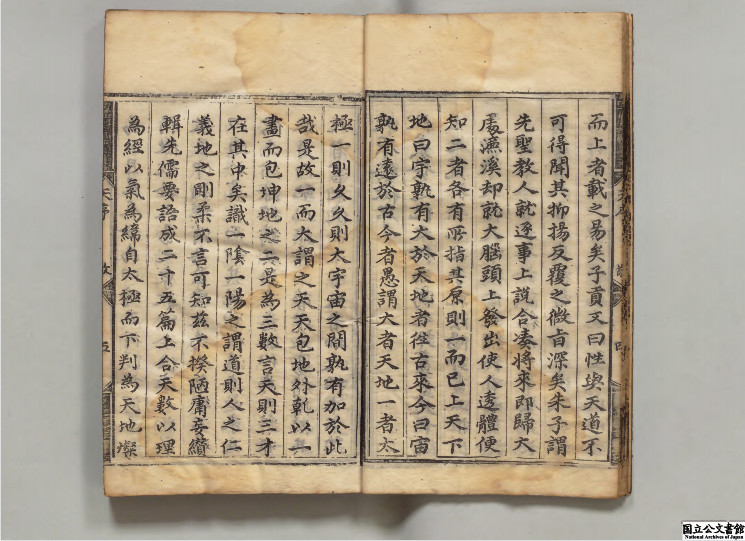 而上者載之易矣子貢又曰性與天道不
可得聞其抑揚反覆之微旨深矣朱子謂
先聖教人就逐事上說合湊將來即歸大
處濂溪却就大腦頭上發出使人透體便
知二者各有所指其原則一而已上天下
地曰宇孰有大於天地者徃古來今曰宙
孰有遠於古今者愚謂大者天地一者太
極一則久久則大宇宙之間孰有加於此
哉是故一而大謂之天天包地外乾以一
畫而包坤地之二是為三數言天則三才
在其中矣識一陰一陽之謂道則人之仁
義地之剛柔不言可知玆不揆陋庸妄纘
輯先儒要語成二十五篇上合天數以理
為經以氣為緯自太極而下判為天地燦
天序
五
国立公文書館
National Archives of Japan